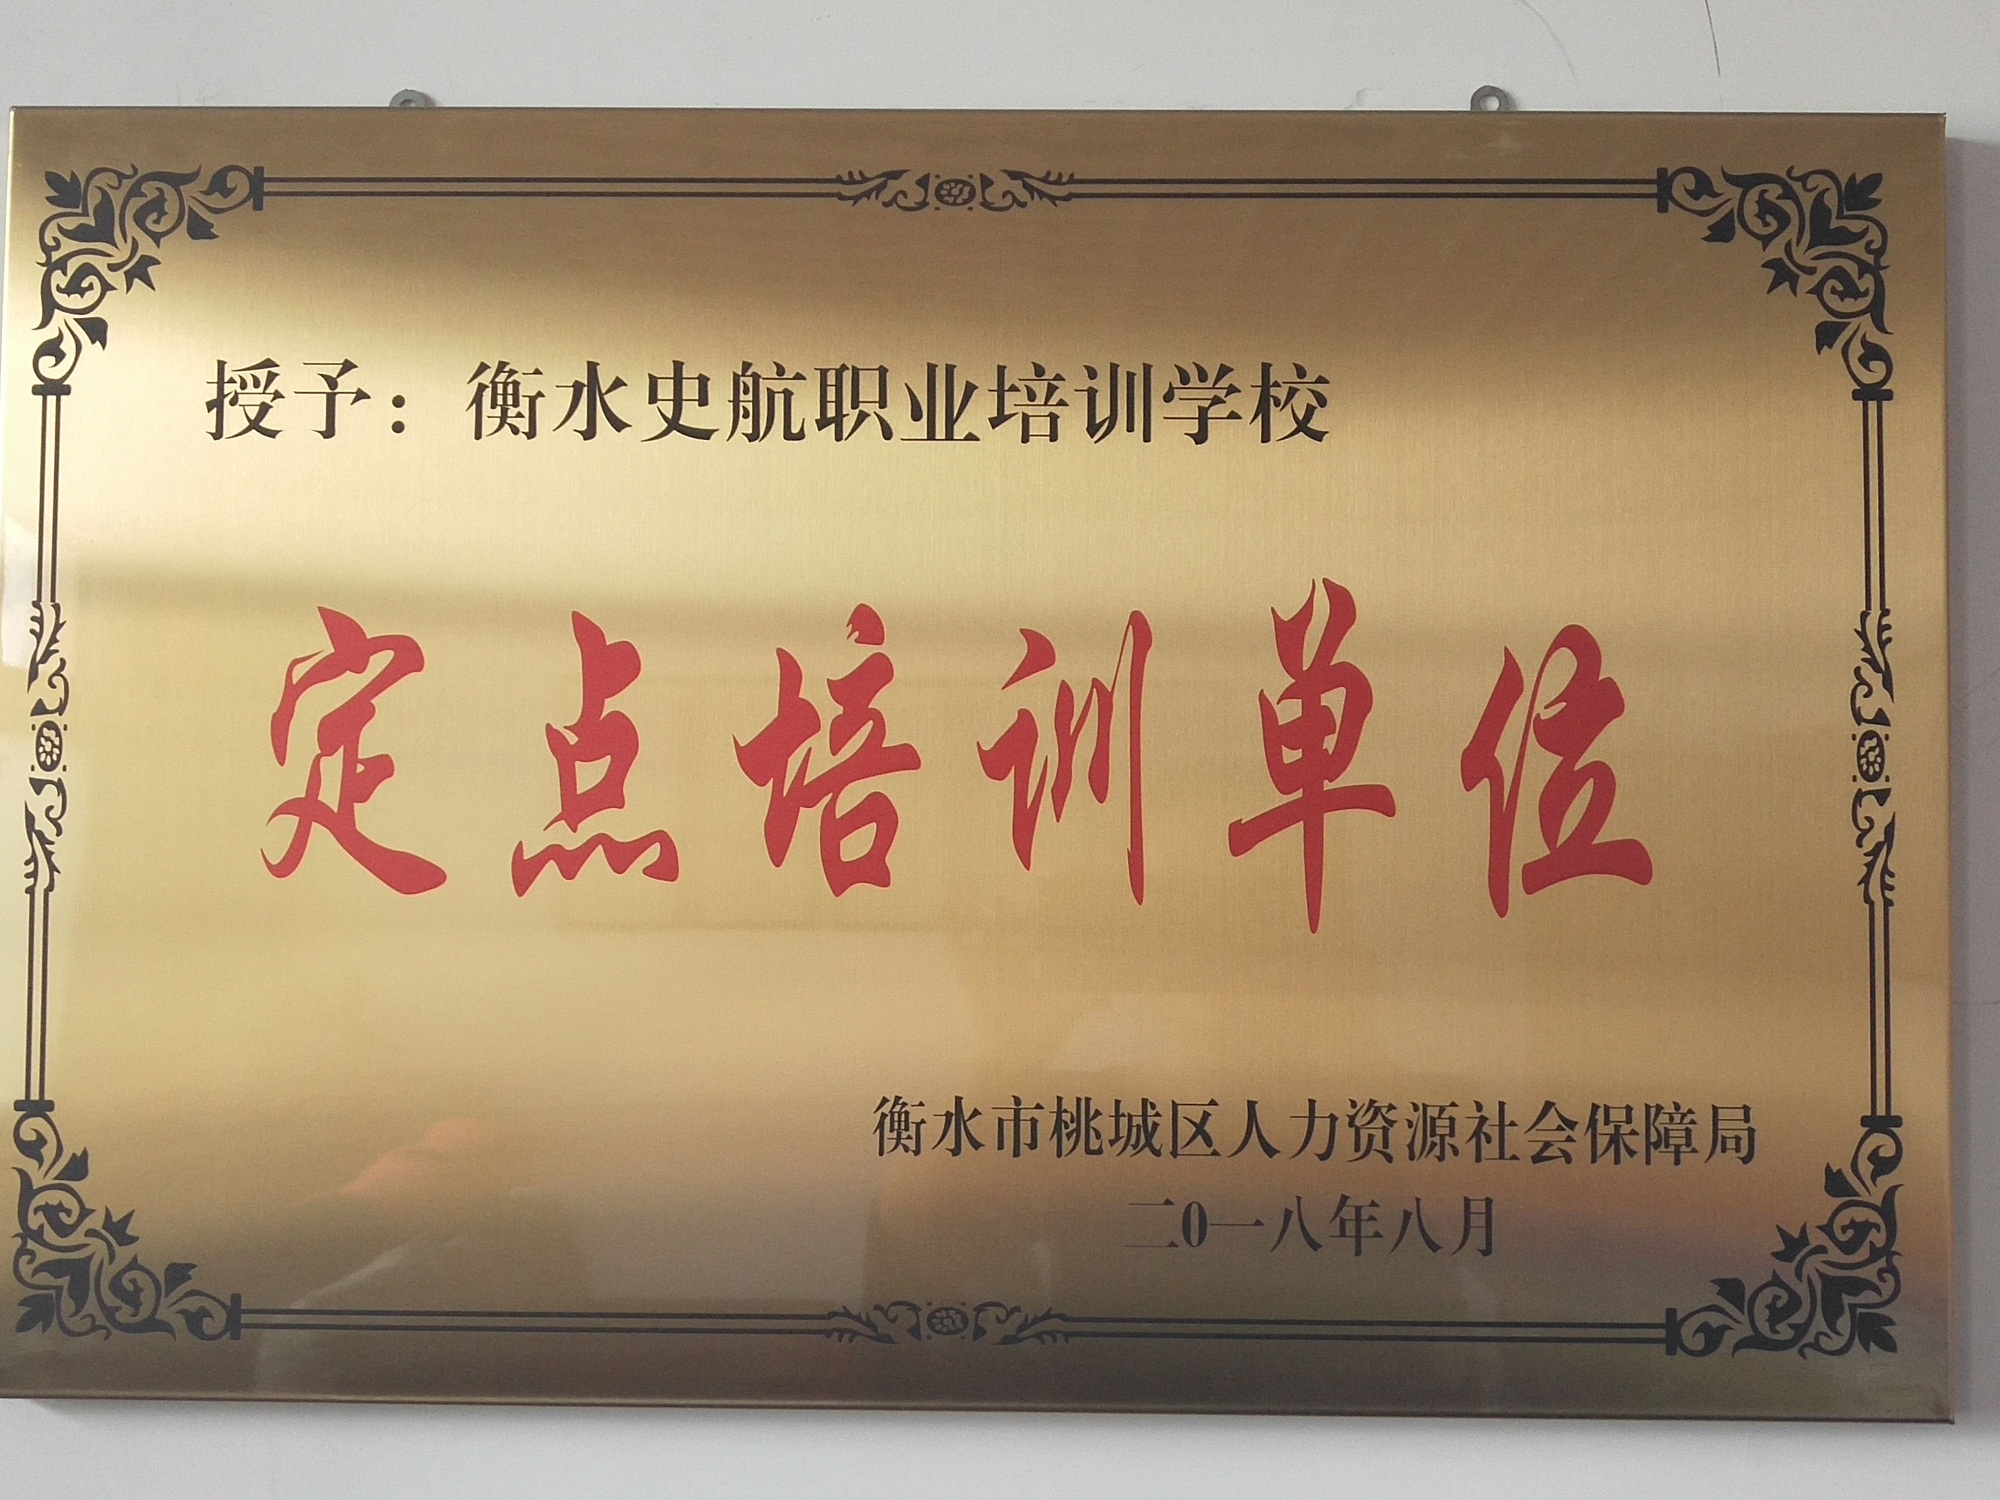 授予：衡水史航职业培训学校
定点培训单位
衡水市桃城区人力资源社会保障局
二0一八年八月